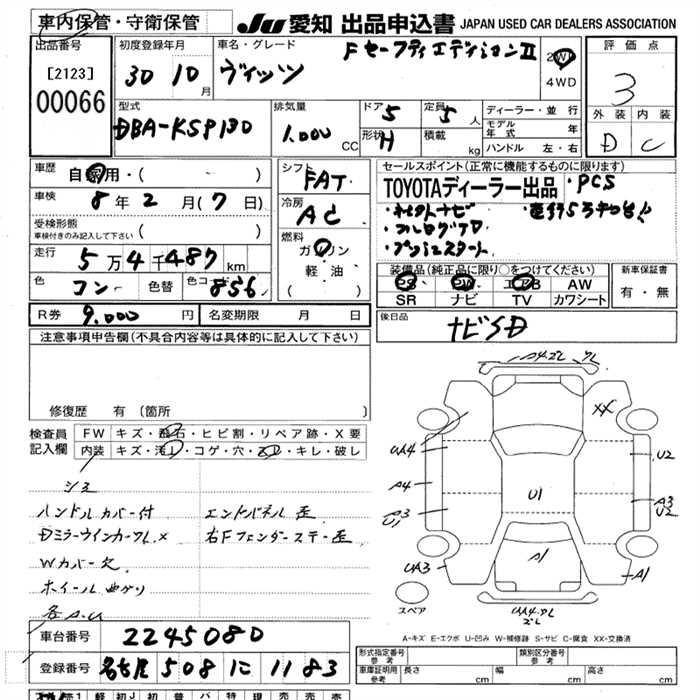 車内保管・守衛保管
JU 愛知 出品申込書 JAPAN USED CAR DEALERS ASSOCIATION
出品番号
[2123]
00066
初度登録年月
30 10月
車名・グレード
ヴィッツ
F セーフティエディションⅡ
2WD
4WD
評価点
3
外装 内装
D C
型式
DBA-KSP130
排気量
1.000 CC
ドア 5
形状 H
定員 5 人
積載 kg
ディーラー・並行
モデル年式 年
ハンドル 左・右
車歴 自家用・( )
車検 8年2月(7日)
受検形態
車検付きのみ記入して下さい ( )
走行 5万4千487km
色 コン 色替 色コード 856
シフト FAT
冷房 AC
燃料
ガソリン
軽・油
( )
セールスポイント(正常に機能するものに限ります)
TOYOTAディーラー出品 ・PCS
装備品(純正品に限り○をつけてください)
PS PW エアB AW
SR ナビ TV カワシート
新車保証書
有・無
R券 9.000円 名変期限 月 日
後日品
ナビSD
注意事項申告欄(不具合内容等は具体的に記入して下さい)
修復歴 有(箇所 )
検査員記入欄
FW キズ・飛石・ヒビ割・リペア跡・X要
内装 キズ・汚れ・コゲ・穴・スレ・キレ・破レ
シミ
ハンドルカバー付
エンドパネル歪
Dミラーウインカーフレ×
右Fフェンダーステー歪
Wカバー欠
ホイール曲がり
各A.U
A4スレ
XX
UA4
U2
A4
U1
A3
U2
U1
UA3
A1
A1
スペア
A-キズ E-エクボ U-凹み W-補修跡 S-サビ C-腐食 XX-交換済
車台番号 2245080
登録番号 名古屋 508 に 1183
形式指定番号 参考
類別区分番号 参考
車庫証明用 参考 長さ cm 幅 cm 高さ cm